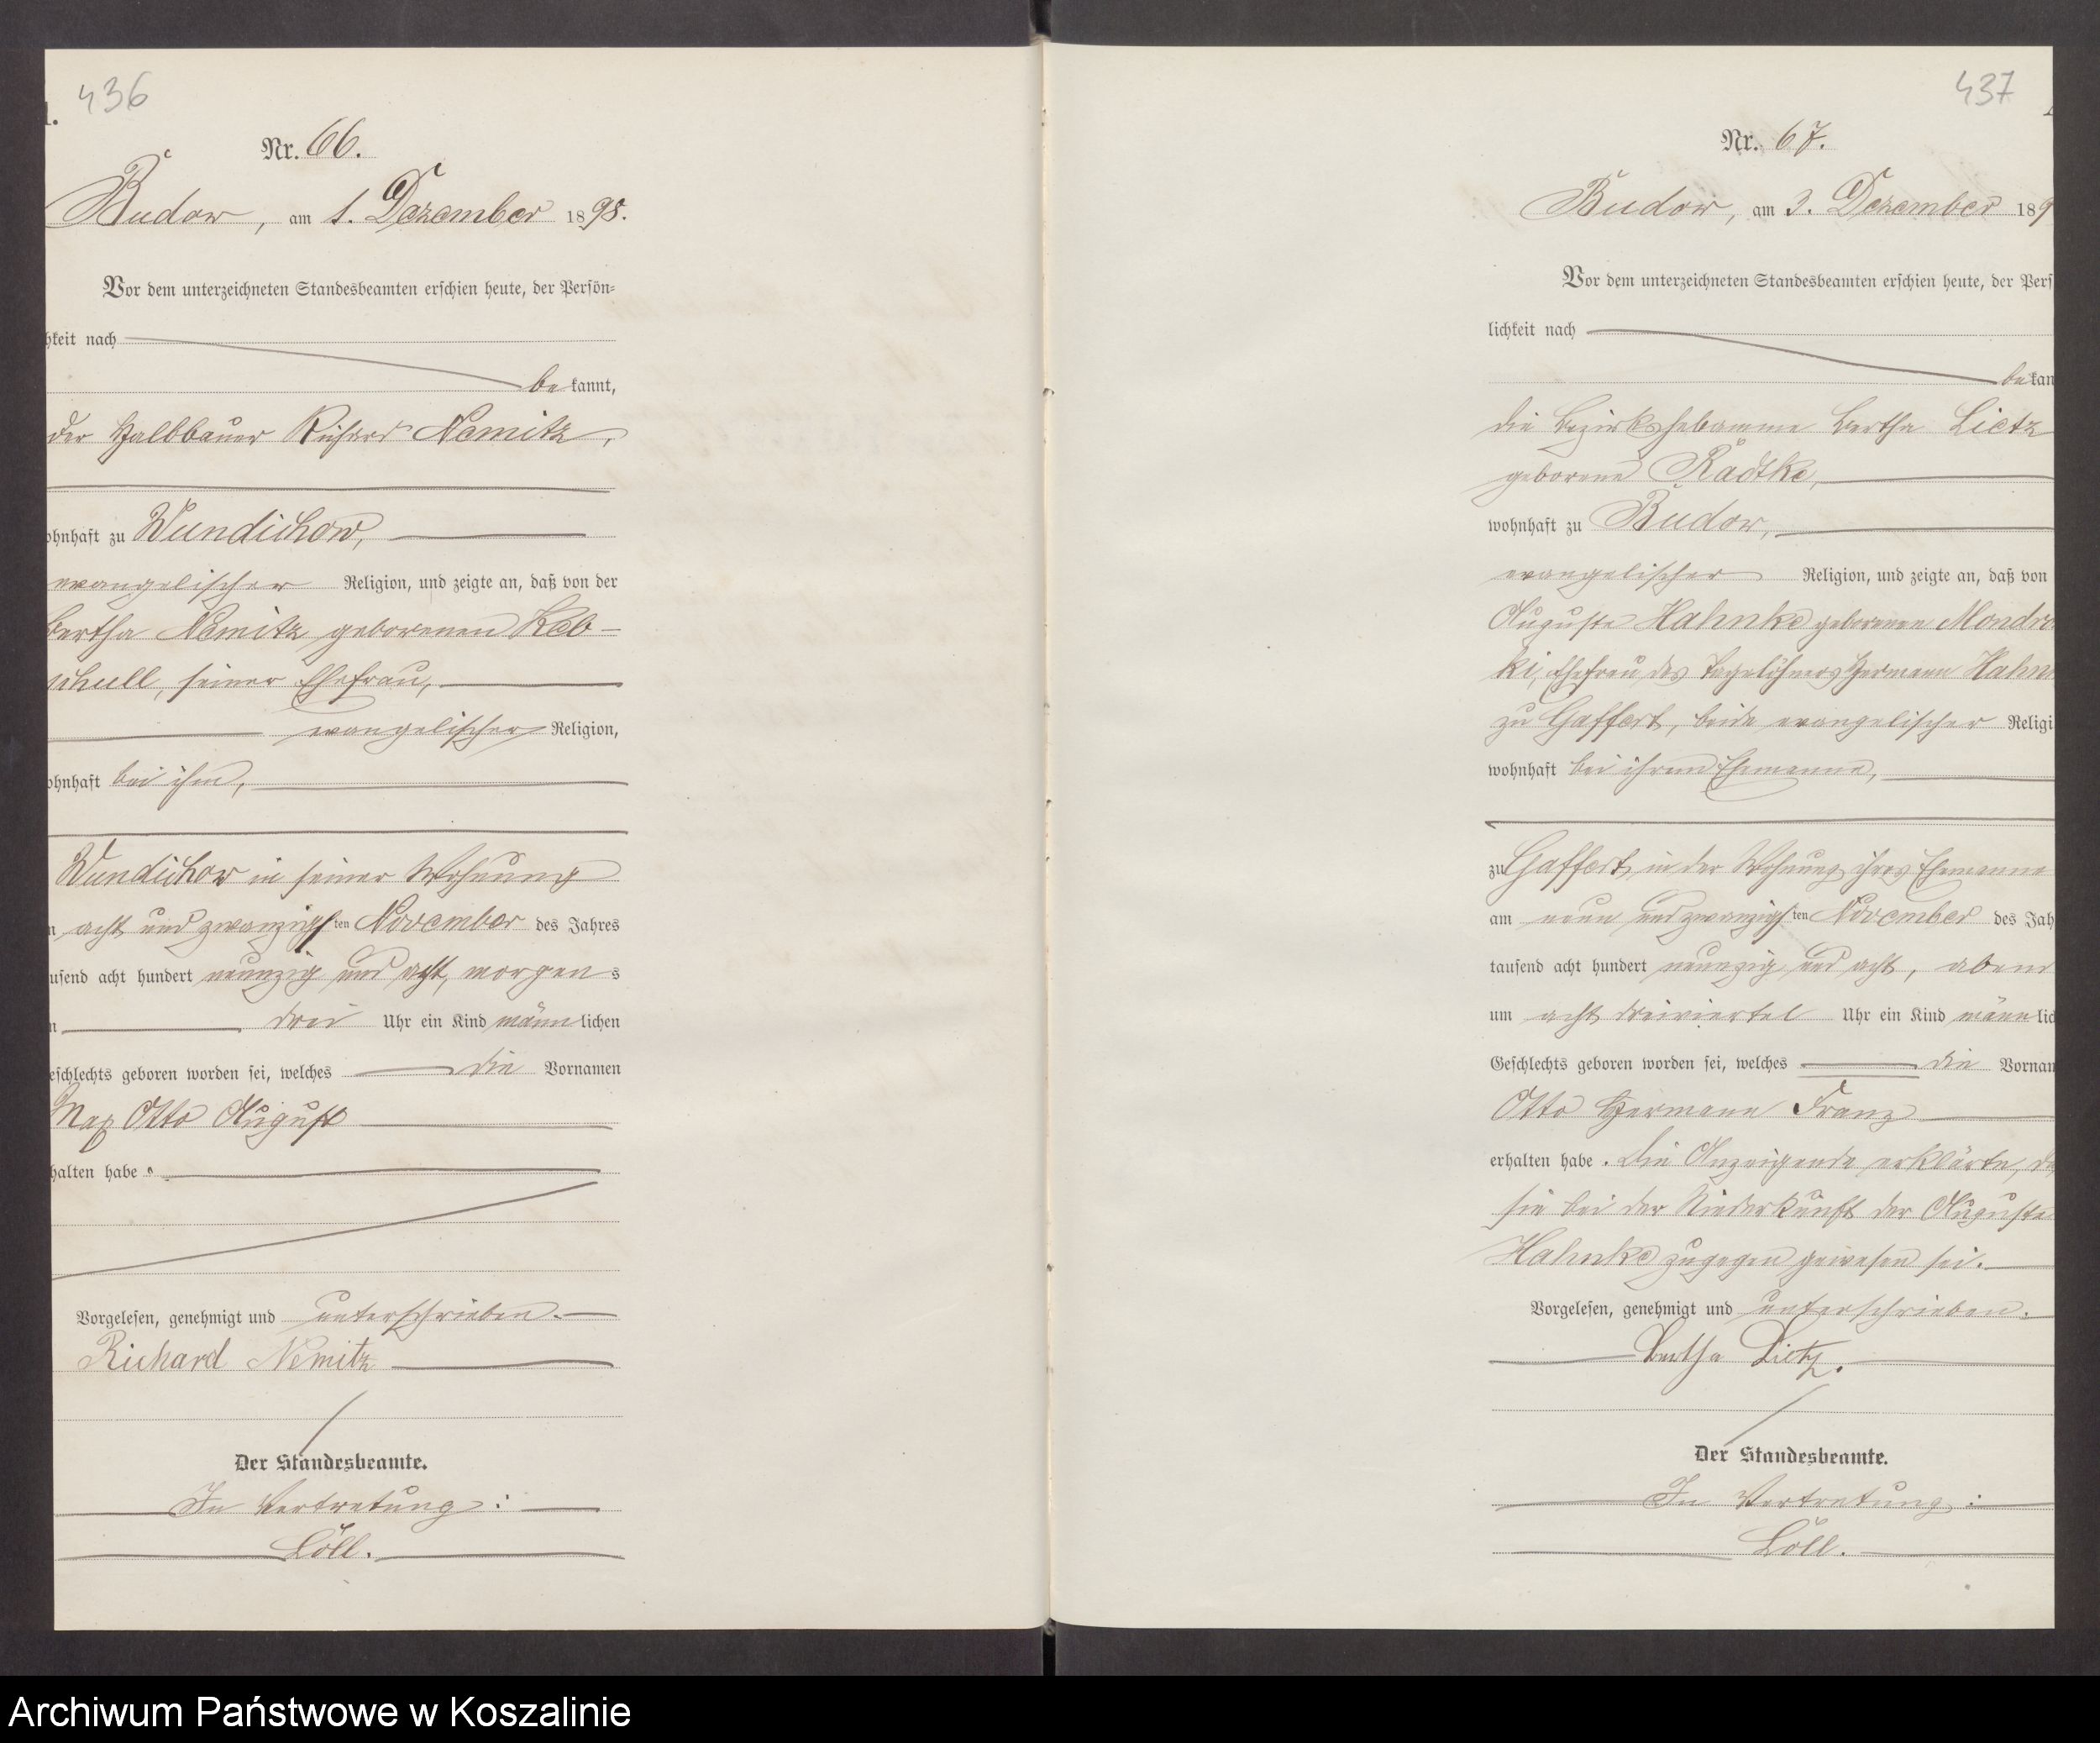 436
Nr. 66.
Budow, am 1. Dezember 1898.
Vor dem unterzeichneten Standesbeamten erschien heute, der Persön=
hkeit nach
bekannt,
der Halbbauer Richard Nemitz,
ohnhaft zu Wundichow,
evangelischer Religion, und zeigte an, daß von der
Bertha Nemitz geborenen Keb-
schull, seiner Ehefrau,
evangelischer Religion,
ohnhaft bei ihm,
Wundichow in seiner Wohnung
n acht und zwanzigsten November des Jahres
usend acht hundert neunzig und acht, morgens
drei Uhr ein Kind männlichen
eschlechts geboren worden sei, welches die Vornamen
Max Otto August
halten habe.
Vorgelesen, genehmigt und unterschrieben.
Richard Nemitz
Der Standesbeamte.
In Vertretung:
Löll.
437
Nr. 67.
Budow, am 3. Dezember 189
Vor dem unterzeichneten Standesbeamten erschien heute, der Pers
lichkeit nach
bekan
die Bezirkshebamme Bertha Lietz
geborene Radtke,
wohnhaft zu Budow,
evangelischer Religion, und zeigte an, daß von
Auguste Hahnke geborenen Mondro
ki, Ehefrau des Tagelöhners Hermann Hahn
zu Gaffert, beide evangelischer Religi
wohnhaft bei ihrem Ehemanne,
zu Gaffert, in der Wohnung ihres Ehemanne
am neun und zwanzigsten November des Jah
tausend acht hundert neunzig und acht, aben
um acht dreiviertel Uhr ein Kind männlic
Geschlechts geboren worden sei, welches die Vornan
Otto Hermann Franz
erhalten habe. Die Anzeigende erklärte, da
sie bei der Niederkunft der Auguste
Hahnke zugegen gewesen sei.
Vorgelesen, genehmigt und unterschrieben.
Bertha Lietz.
Der Standesbeamte.
In Vertretung:
Löll.
Archiwum Państwowe w Koszalinie